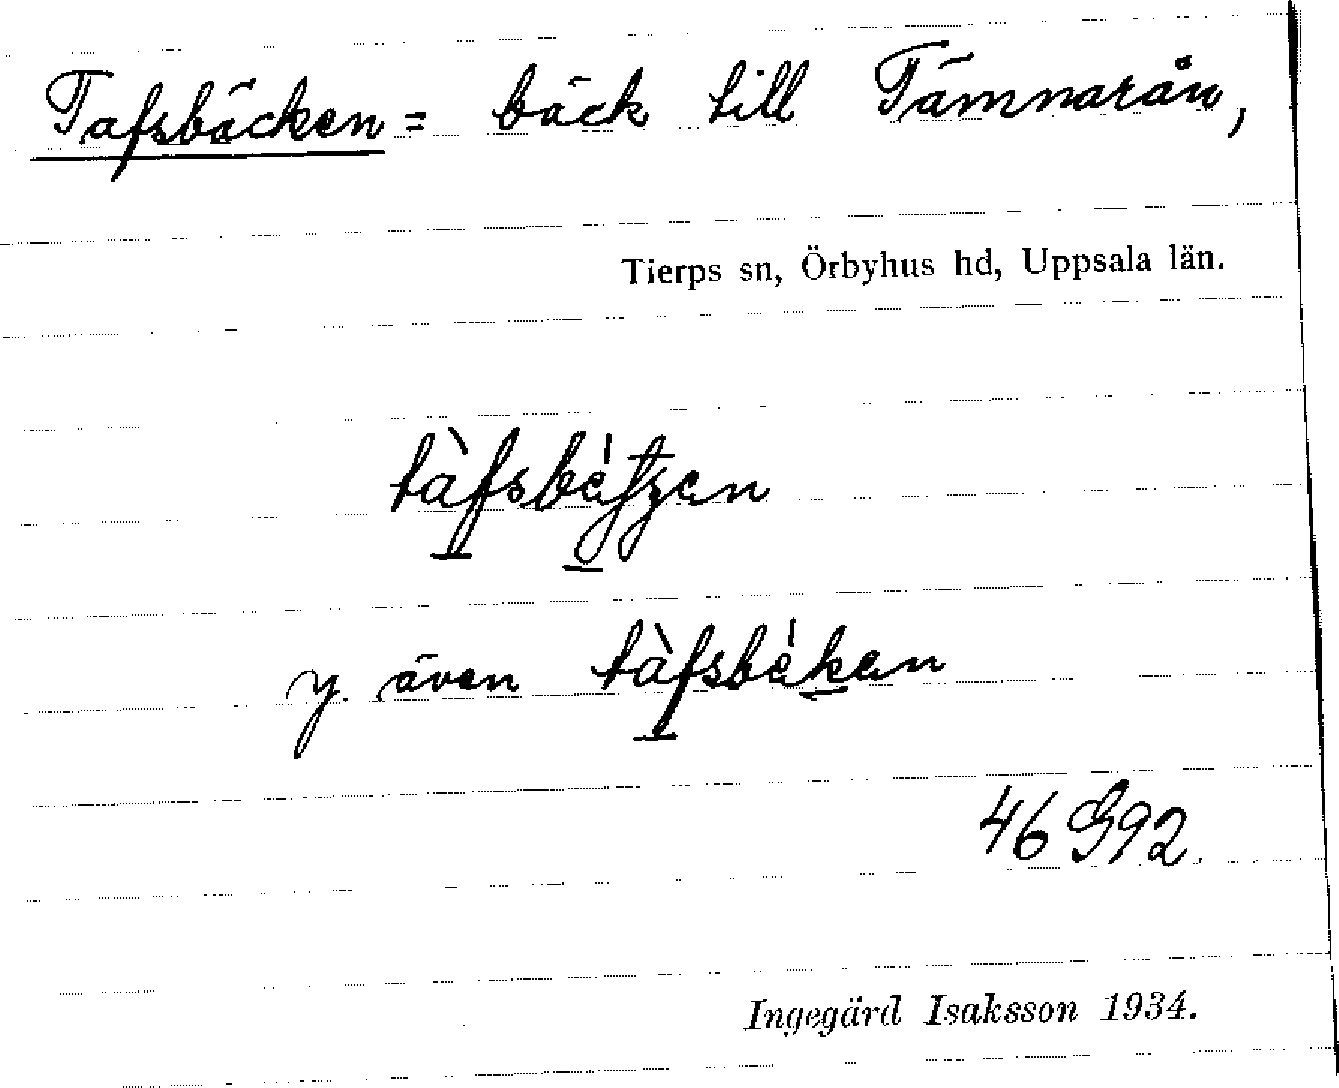 Tafsbäcken = bäck till Tämnarån,
Tierps sn, Örbyhus hd, Uppsala län.
y. även
46 G92
Ingegärd Isaksson 1934.